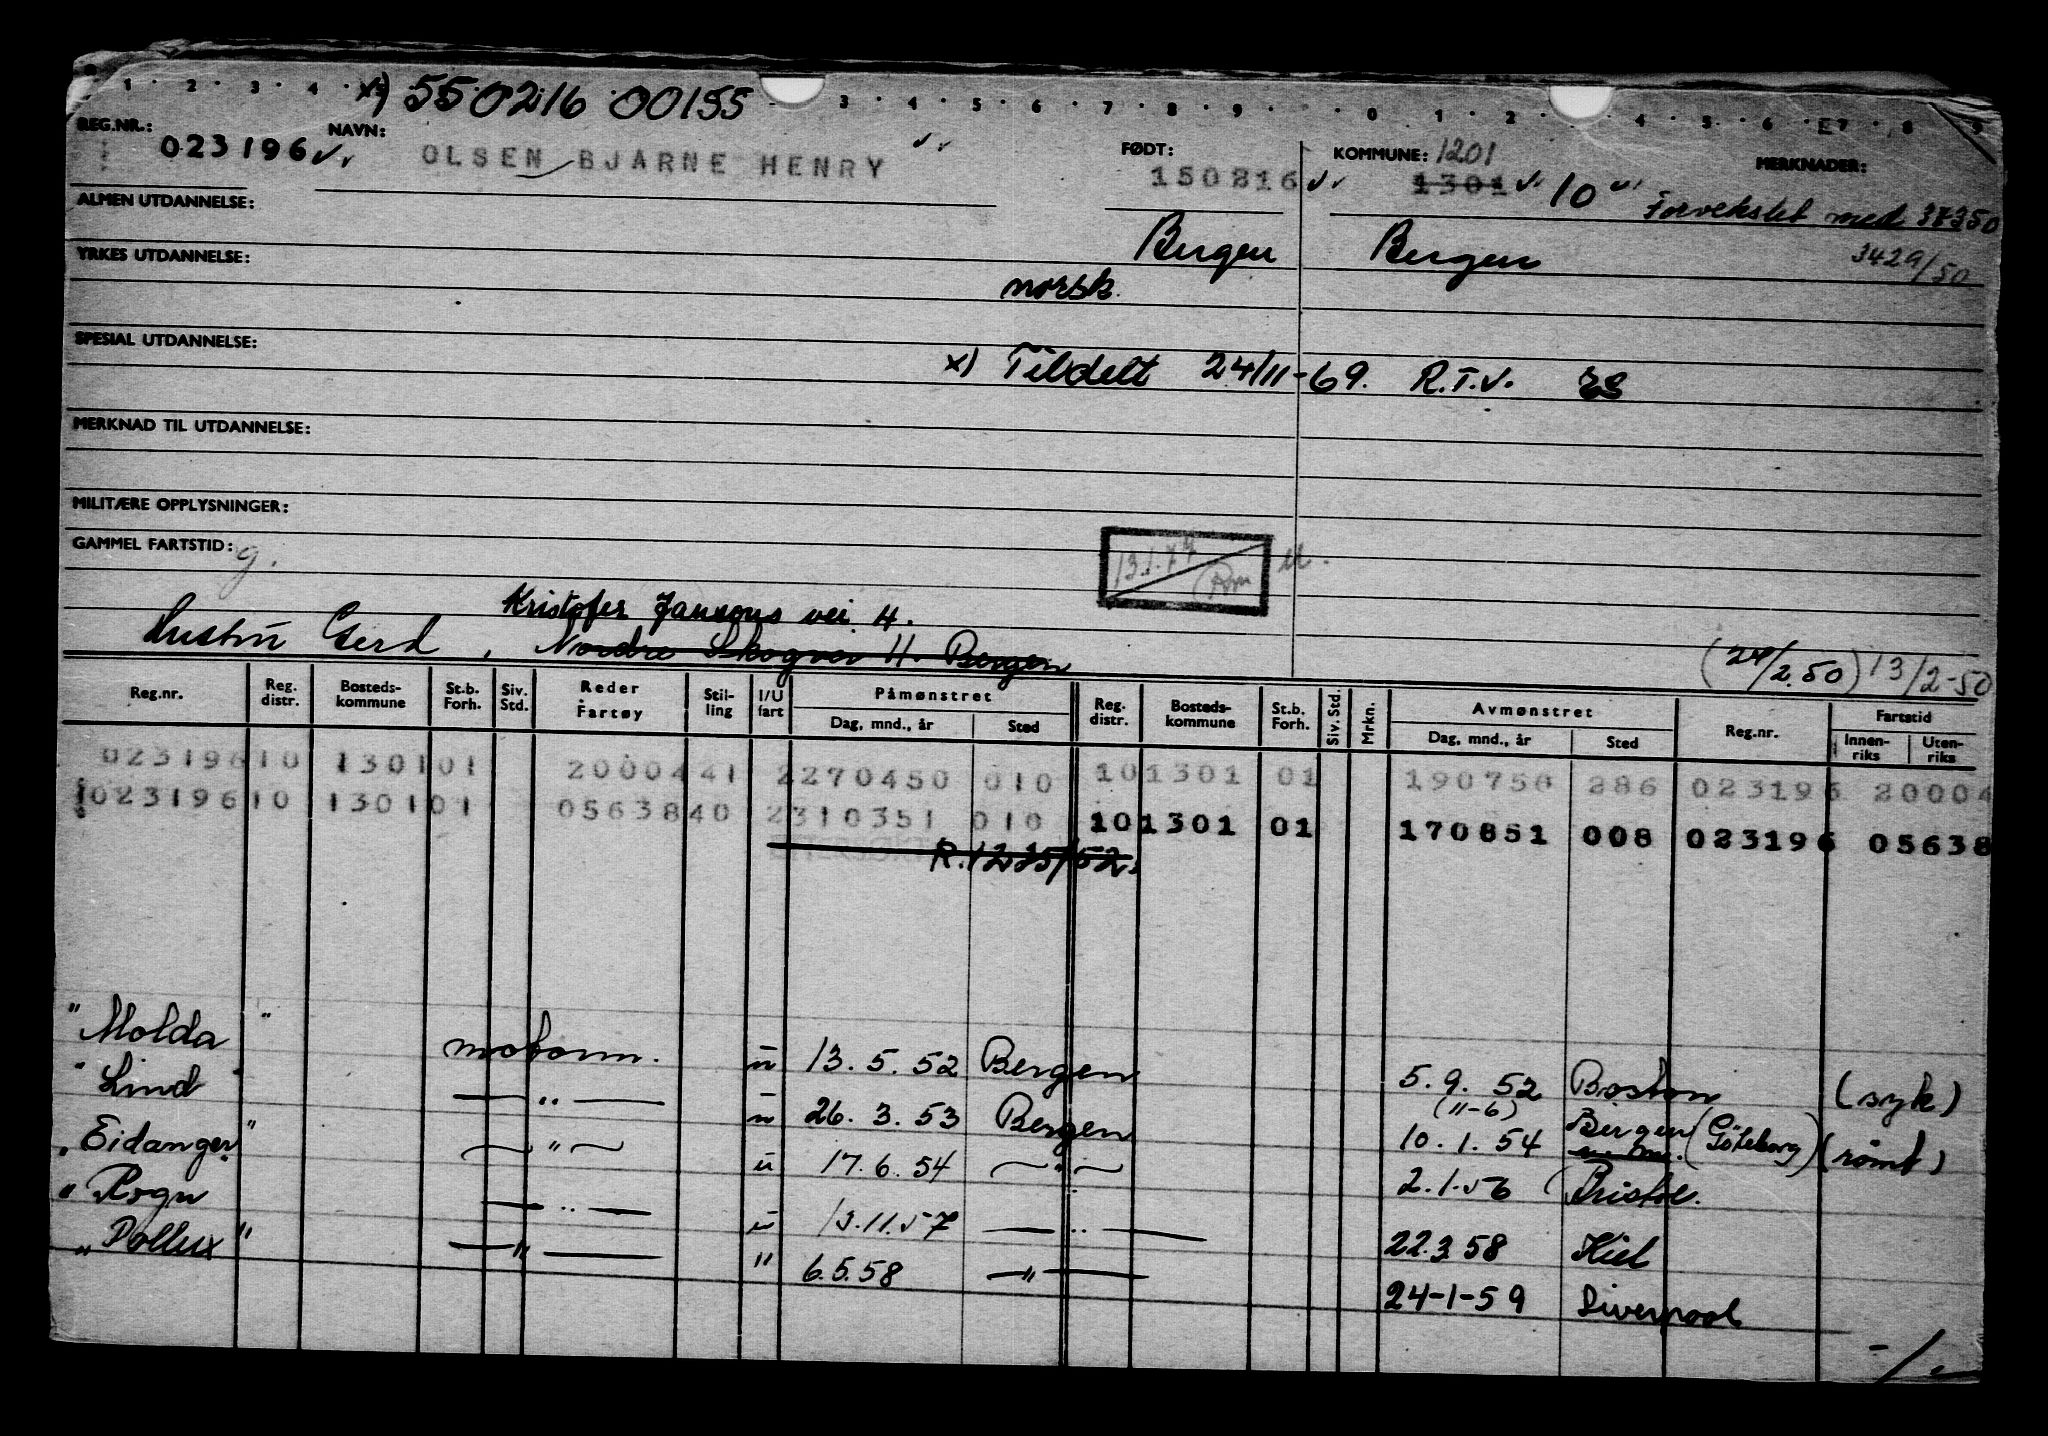 1 2 3 4 x) 550216 00155 3 4 5 6 7 8 9 0 1 2 4 5 6 E7 8 9
REG.NR.: 023196 NAVN: OLSEN BJARNE HENRY FØDT: 150816 KOMMUNE: 1201 1301 10 MERKNADER:
Forvekslet med 37350
ALMEN UTDANNELSE:
Bergen Bergen 3429/50
YRKES UTDANNELSE:
norsk.
SPESIAL UTDANNELSE:
x) Tildelt 24/11-69. R.T.V.
MERKNAD TIL UTDANNELSE:
MILITÆRE OPPLYSNINGER:
GAMMEL FARTSTID: g.
13.1.77
Kristofer Jansons vei 4.
Hustru Gerd, Nordre Skogvei 11. Bergen
(24/2.50) 13/2-50
Reg.nr. Reg. distr. Bosteds-kommune St.b. Forh. Siv. Std. Reder Fartøy Stil-ling I/U fart Påmønstret Dag, mnd., år Sted Reg. distr. Bosteds-kommune St.b. Forh. Siv. Std. Mrkn. Avmønstret Dag, mnd., år Sted Reg.nr. Fartstid Innen-riks Uten-riks
023196 10 1301 01 20004 41 2 270450 010 10 1301 01 190750 286 023196 20004
023196 10 1301 01 05638 40 2 310351 010 10 1301 01 170851 008 023196 05638
R.1235/52.
"Molda" motorm. u 13.5.52 Bergen 5.9.52 Boston (syk)
"Lind" — " — u 26.3.53 Bergen (11-6) 10.1.54 Bergen (Göteborg) (rømt)
"Eidanger" — " — u 17.6.54 — " — 2.1.56 Bristol.
"Rogn — " — u 13.11.57 — " — 22.3.58 Kiel
"Pollux" — " — " 6.5.58 — " — 24-1-59 Liverpool